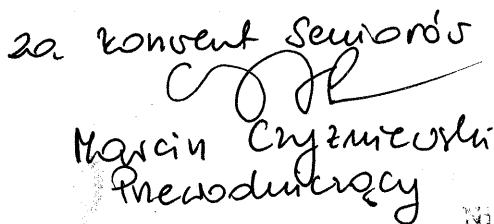 za konwent Seniorów
Marcin Czyżniewski
Przewodniczący